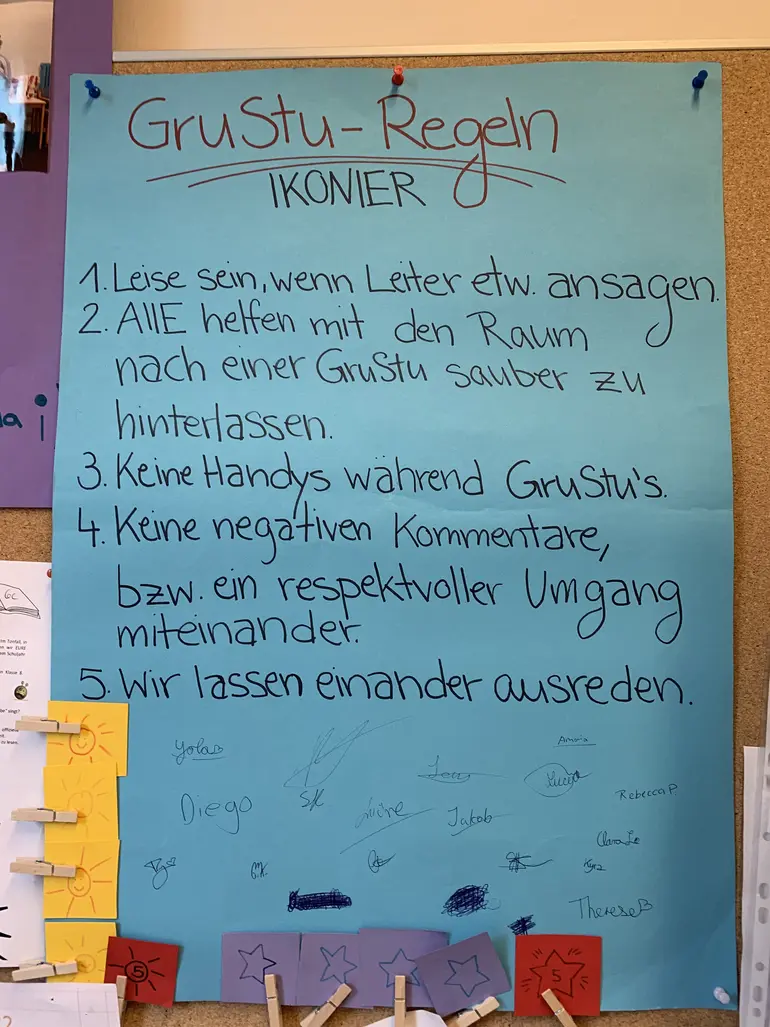 GruStu-Regeln
IKONIER
1. Leise sein, wenn Leiter etw. ansagen.
2. AllE helfen mit den Raum
nach einer GruStu sauber zu
hinterlassen.
3. Keine Handys während GruStu's.
4. Keine negativen Kommentare,
bzw. ein respektvoller Umgang
miteinander.
5. Wir lassen einander ausreden.
Diego
SK
Jakob
RebeccaP
Clara Le
Kyra
ThereseB
5
5
6c